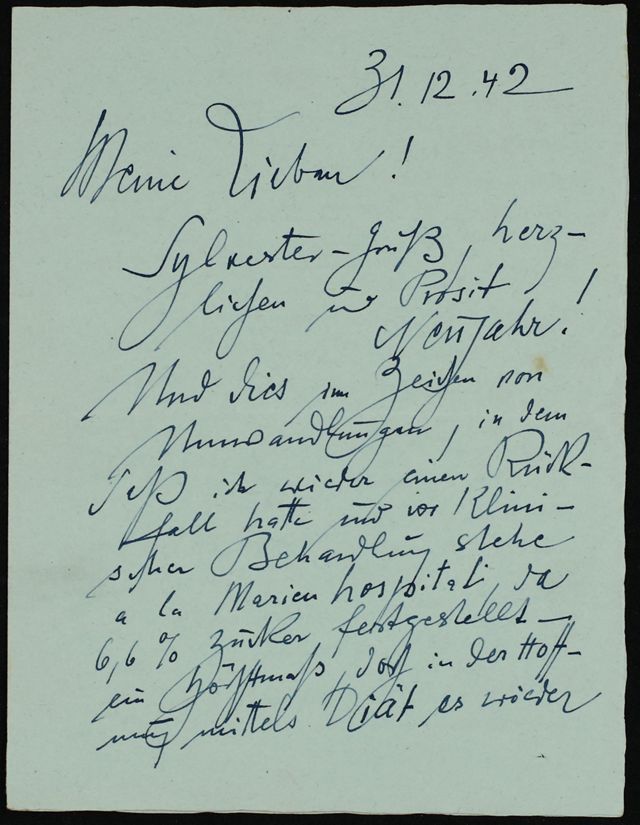 31.12.42
Meine Lieben!
Sylvester-Gruß, herz-
lichen und Prosit
Neujahr!
Und dies im Zeichen von
Umwandlungen, in dem
ich wieder einen Rück-
fall hatte und vor Klini-
scher Behandlung stehe
a la Marienhospital, da
6,6% Zucker festgestellt –
ein Höchstmaß, doch in der Hoff-
nung mittels Diät es wieder